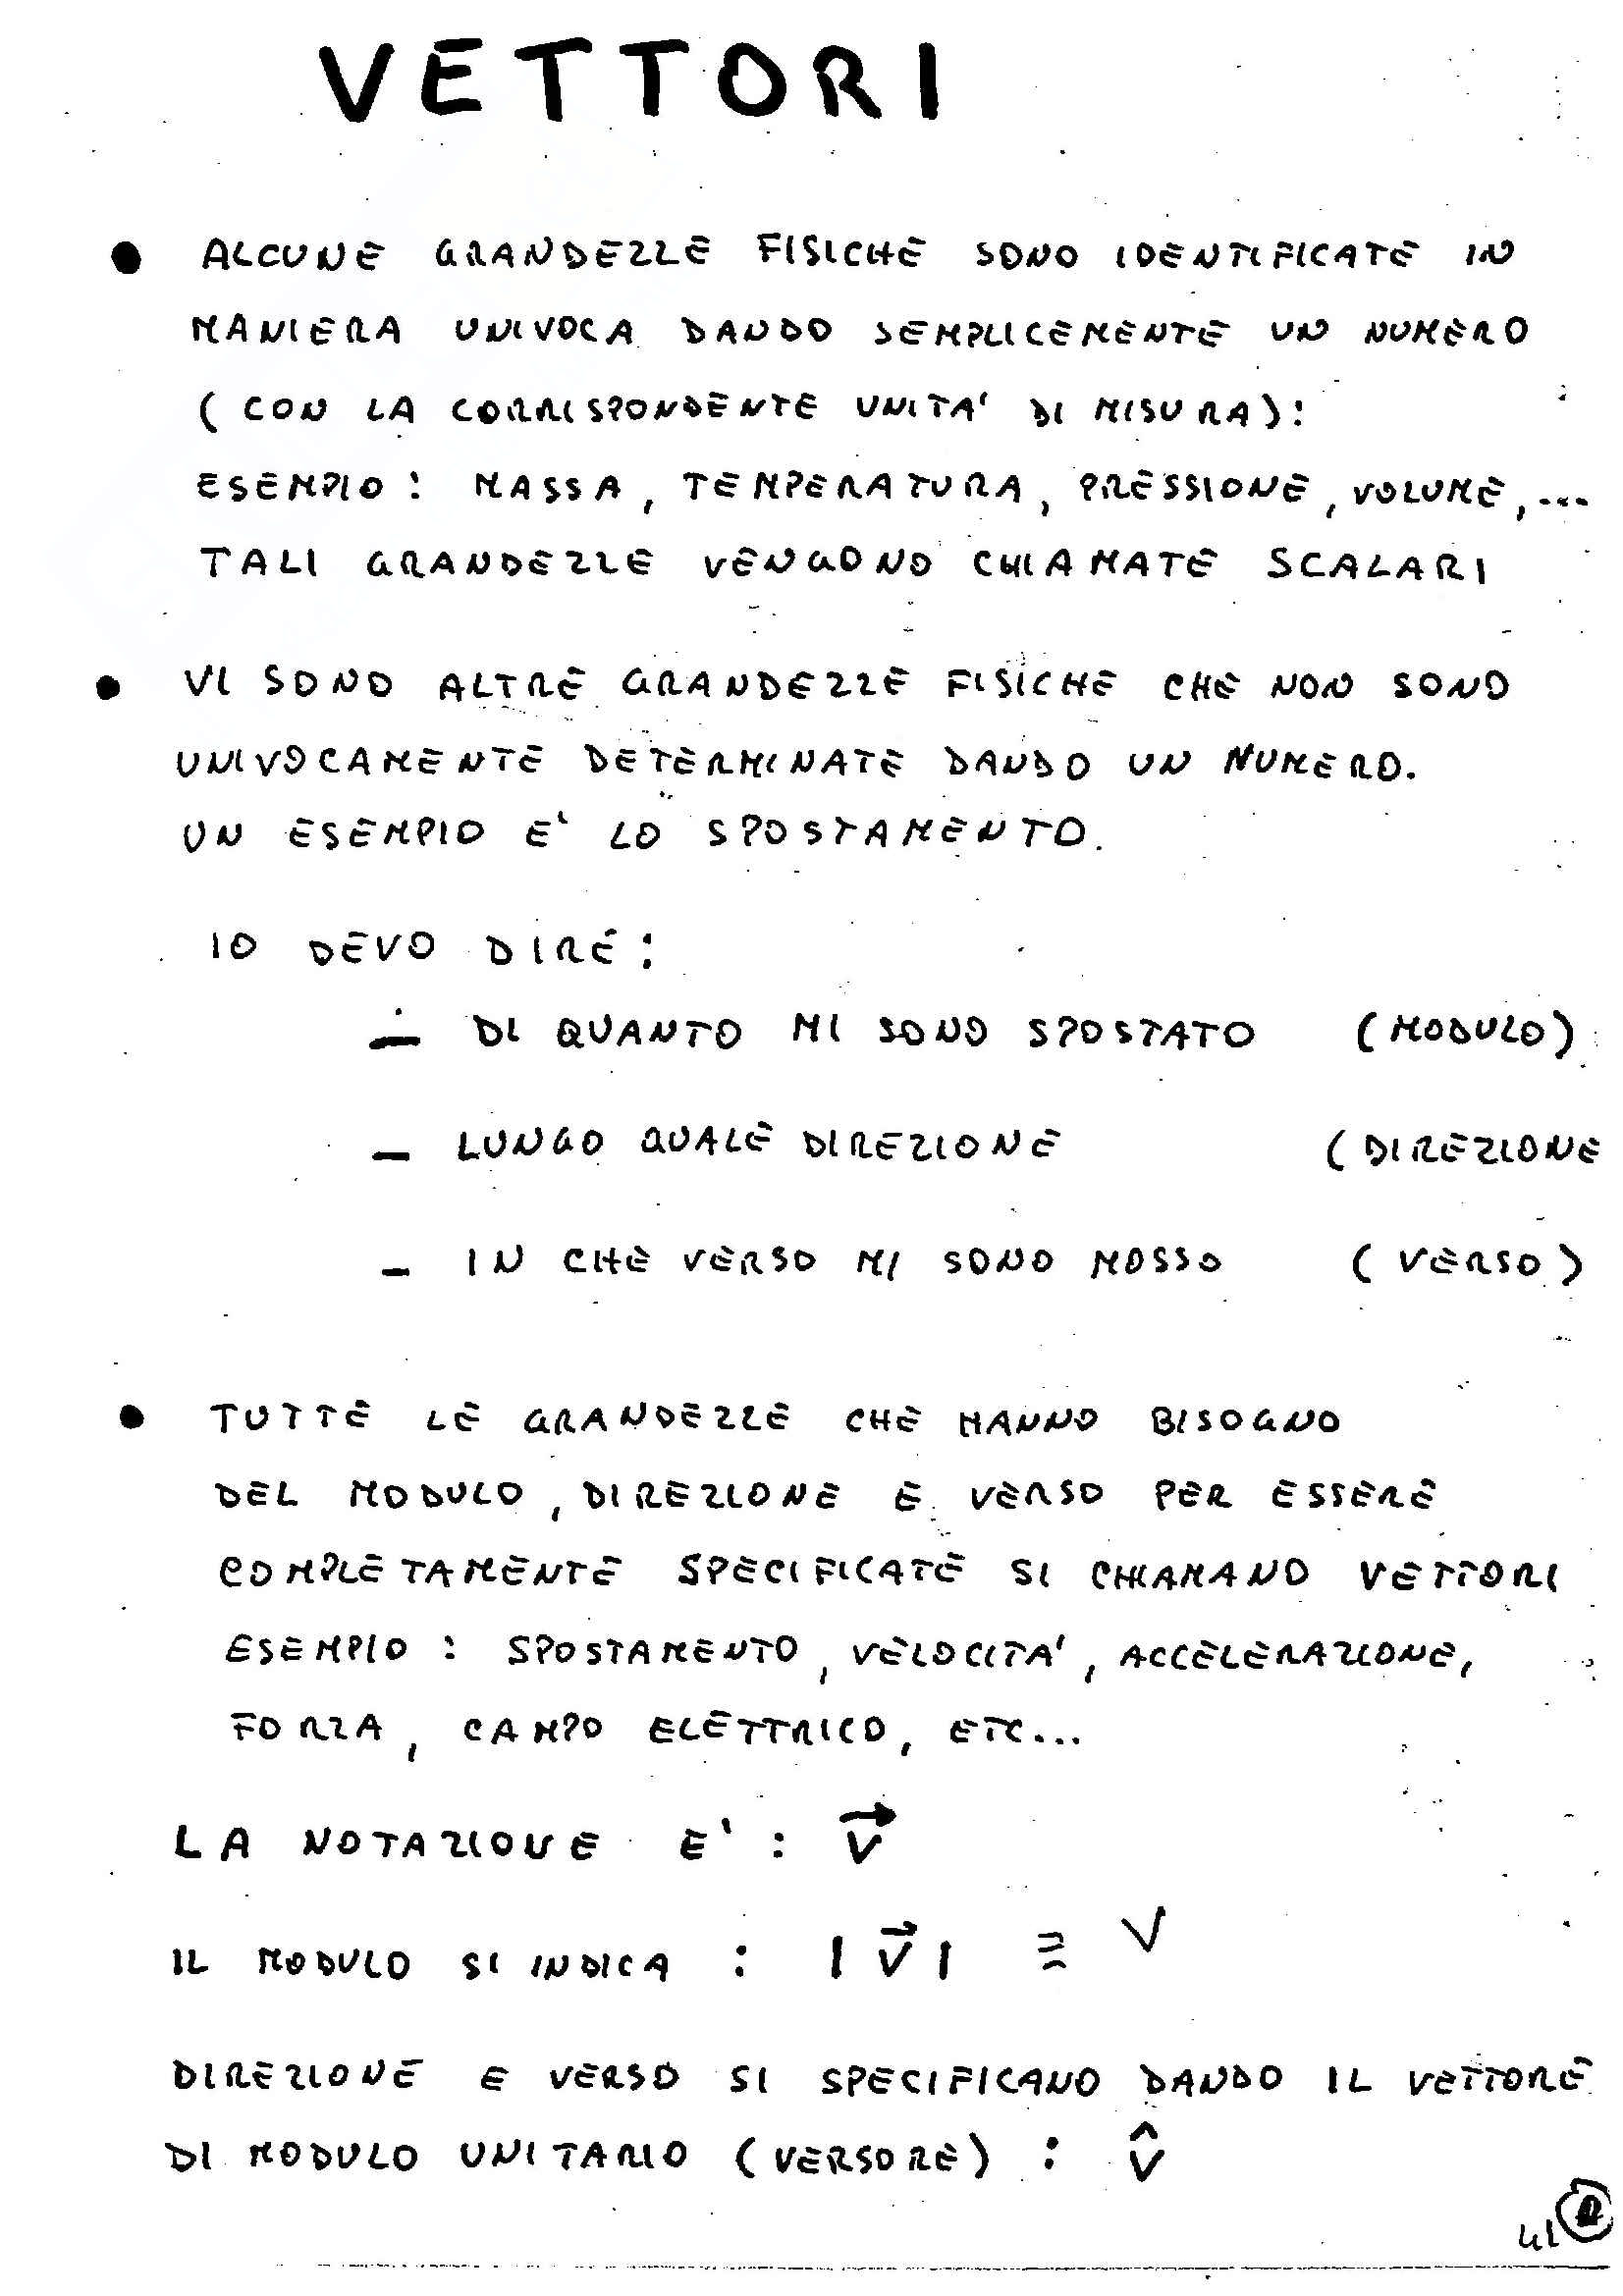 VETTORI
• ALCUNE GRANDEZZE FISICHE SONO IDENTIFICATE IN
MANIERA UNIVOCA DANDO SEMPLICEMENTE UN NUMERO
(CON LA CORRISPONDENTE UNITA' DI MISURA):
ESEMPIO: MASSA, TEMPERATURA, PRESSIONE, VOLUME,...
TALI GRANDEZZE VENGONO CHIAMATE SCALARI
• VI SONO ALTRE GRANDEZZE FISICHE CHE NON SONO
UNIVOCAMENTE DETERMINATE DANDO UN NUMERO.
UN ESEMPIO E' LO SPOSTAMENTO.
IO DEVO DIRE:
– DI QUANTO MI SONO SPOSTATO (MODULO)
– LUNGO QUALE DIREZIONE (DIREZIONE
– IN CHE VERSO MI SONO MOSSO (VERSO)
• TUTTE LE GRANDEZZE CHE HANNO BISOGNO
DEL MODULO, DIREZIONE E VERSO PER ESSERE
COMPLETAMENTE SPECIFICATE SI CHIAMANO VETTORI
ESEMPIO: SPOSTAMENTO, VELOCITA', ACCELERAZIONE,
FORZA, CAMPO ELETTRICO, ETC...
LA NOTAZIONE E': v⃗
IL MODULO SI INDICA: |v⃗| ≡ V
DIREZIONE E VERSO SI SPECIFICANO DANDO IL VETTORE
DI MODULO UNITARIO (VERSORE): v̂
41